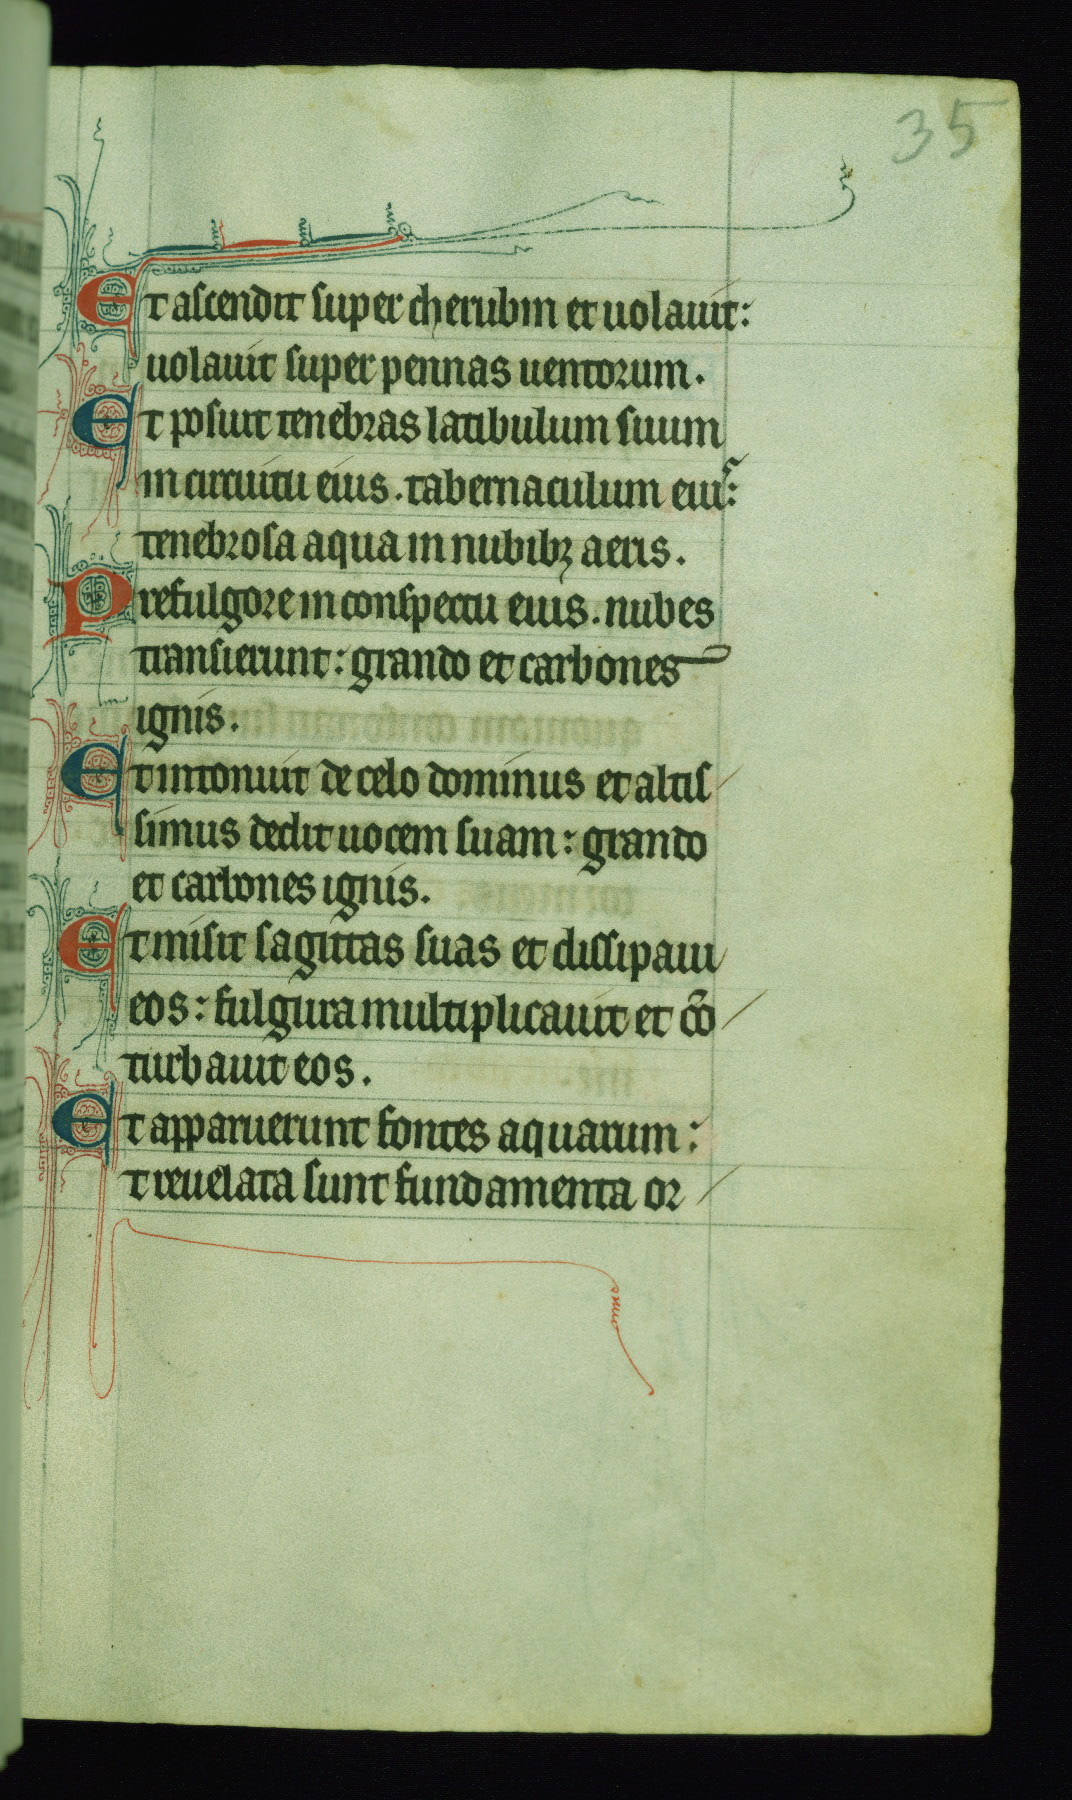 35
Et ascendit super cherubin et uolauit:
uolauit super pennas uentorum.
Et posuit tenebras latibulum suum
in circuitu eius. tabernaculum eius:
tenebrosa aqua in nubibꝫ aeris.
Prefulgore in conspectu eius. nubes
transierunt: grando et carbones
ignis.
Et intonuit de celo dominus et altis
simus dedit uocem suam: grando
et carbones ignis.
Et misit sagittas suas et dissipauit
eos: fulgura multiplicauit et cō
turbauit eos.
Et apparuerunt fontes aquarum:
t reuelata sunt fundamenta or